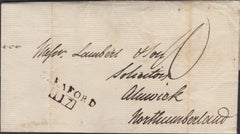 Messrs Lambert & Son
Solicitors
Alnwick
Northumberland
AFORD
117